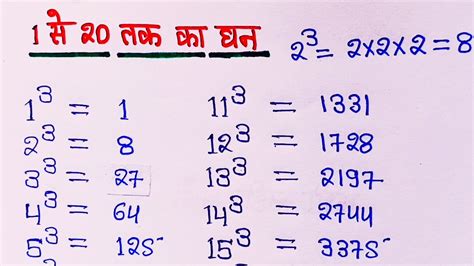 1 से 20 तक का घन
2³ = 2×2×2 = 8
1³ = 1
2³ = 8
3³ = 27
4³ = 64
5³ = 125
11³ = 1331
12³ = 1728
13³ = 2197
14³ = 2744
15³ = 3375